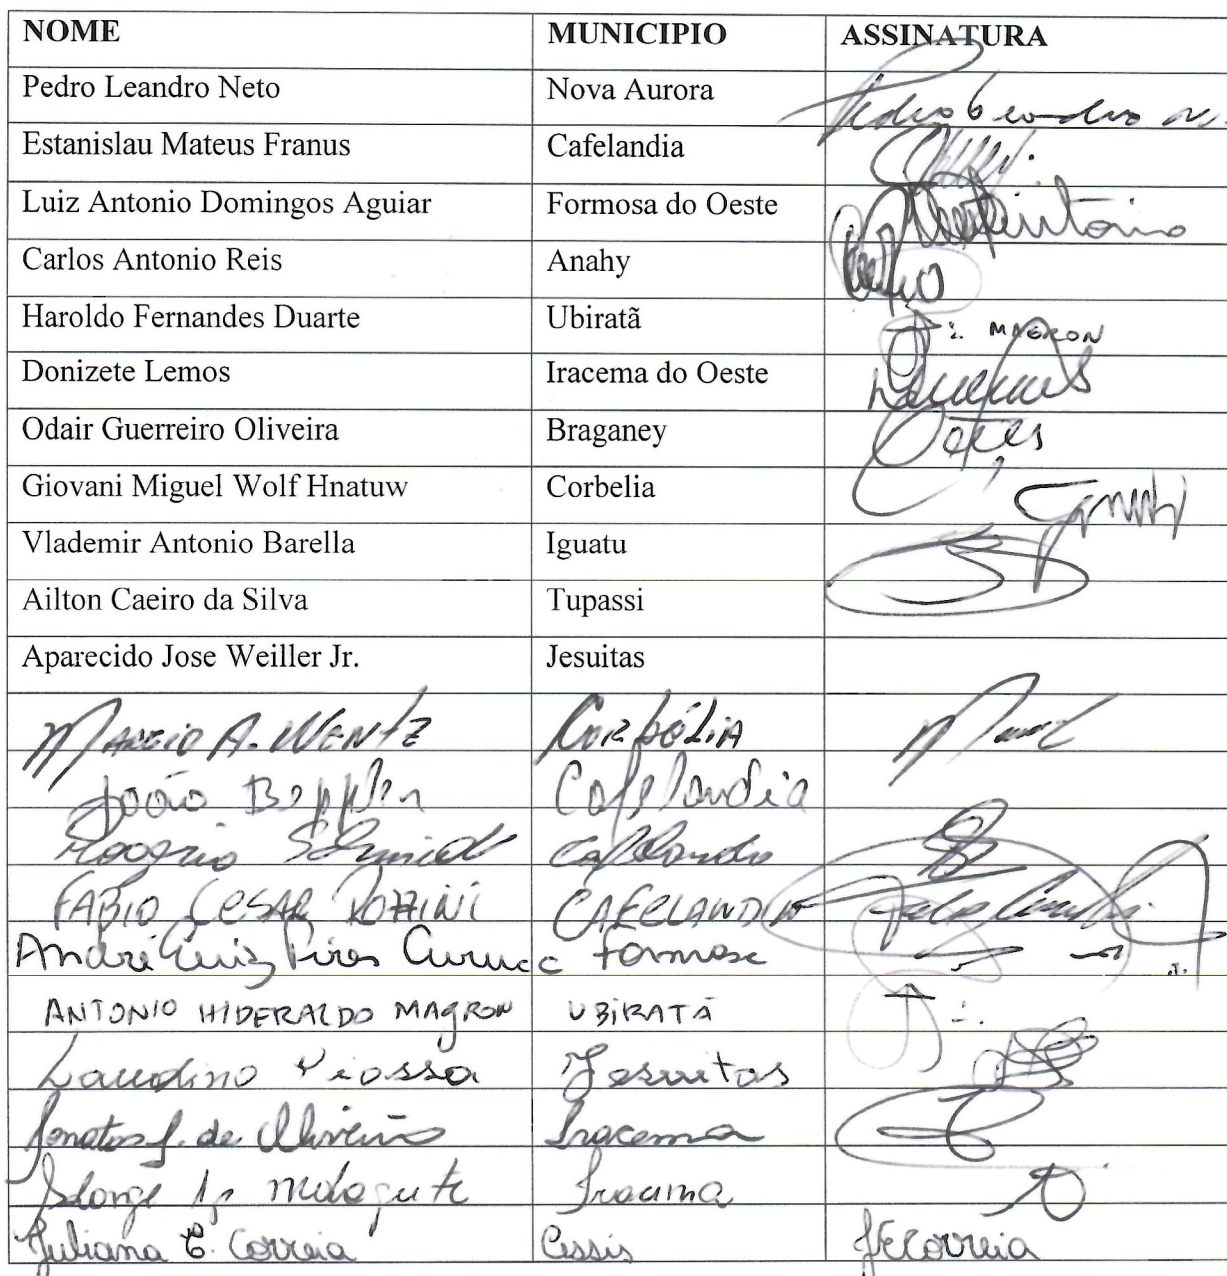 NOME MUNICIPIO ASSINATURA
Pedro Leandro Neto Nova Aurora Pedro Leandro
Estanislau Mateus Franus Cafelandia
Luiz Antonio Domingos Aguiar Formosa do Oeste
Carlos Antonio Reis Anahy
Haroldo Fernandes Duarte Ubiratã MAGRON
Donizete Lemos Iracema do Oeste
Odair Guerreiro Oliveira Braganey
Giovani Miguel Wolf Hnatuw Corbelia
Vlademir Antonio Barella Iguatu
Ailton Caeiro da Silva Tupassi
Aparecido Jose Weiller Jr. Jesuitas
MARCIO A. WENTZ CORBÉLIA
João Bepler Cafelandia
Rogerio Schmidt Cafelandia
FABIO CESAR CAFELANDIA
André Luiz Pires Formosa
ANTONIO HIDERALDO MAGRON UBIRATÃ
Laudino Piossa Jesuitas
Jonatas J. de Oliveira Iracema
Iracema
Juliana C. Correia Cessis JECorreia